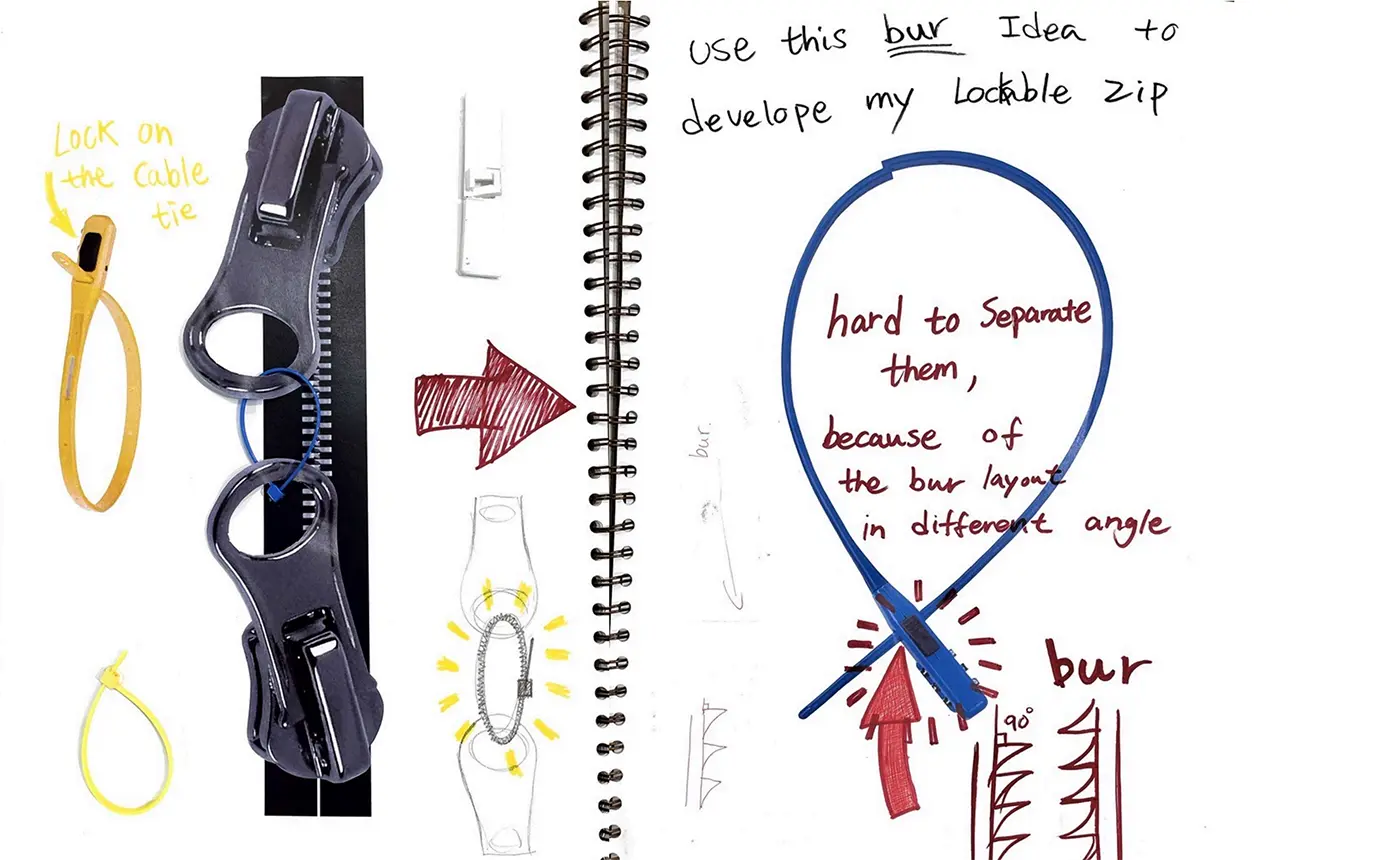 Lock on
the Cable
tie
Use this bur Idea to
develope my Lockable Zip
hard to Separate
them,
because of
the bur layout
in different angle
bur.
bur
90°